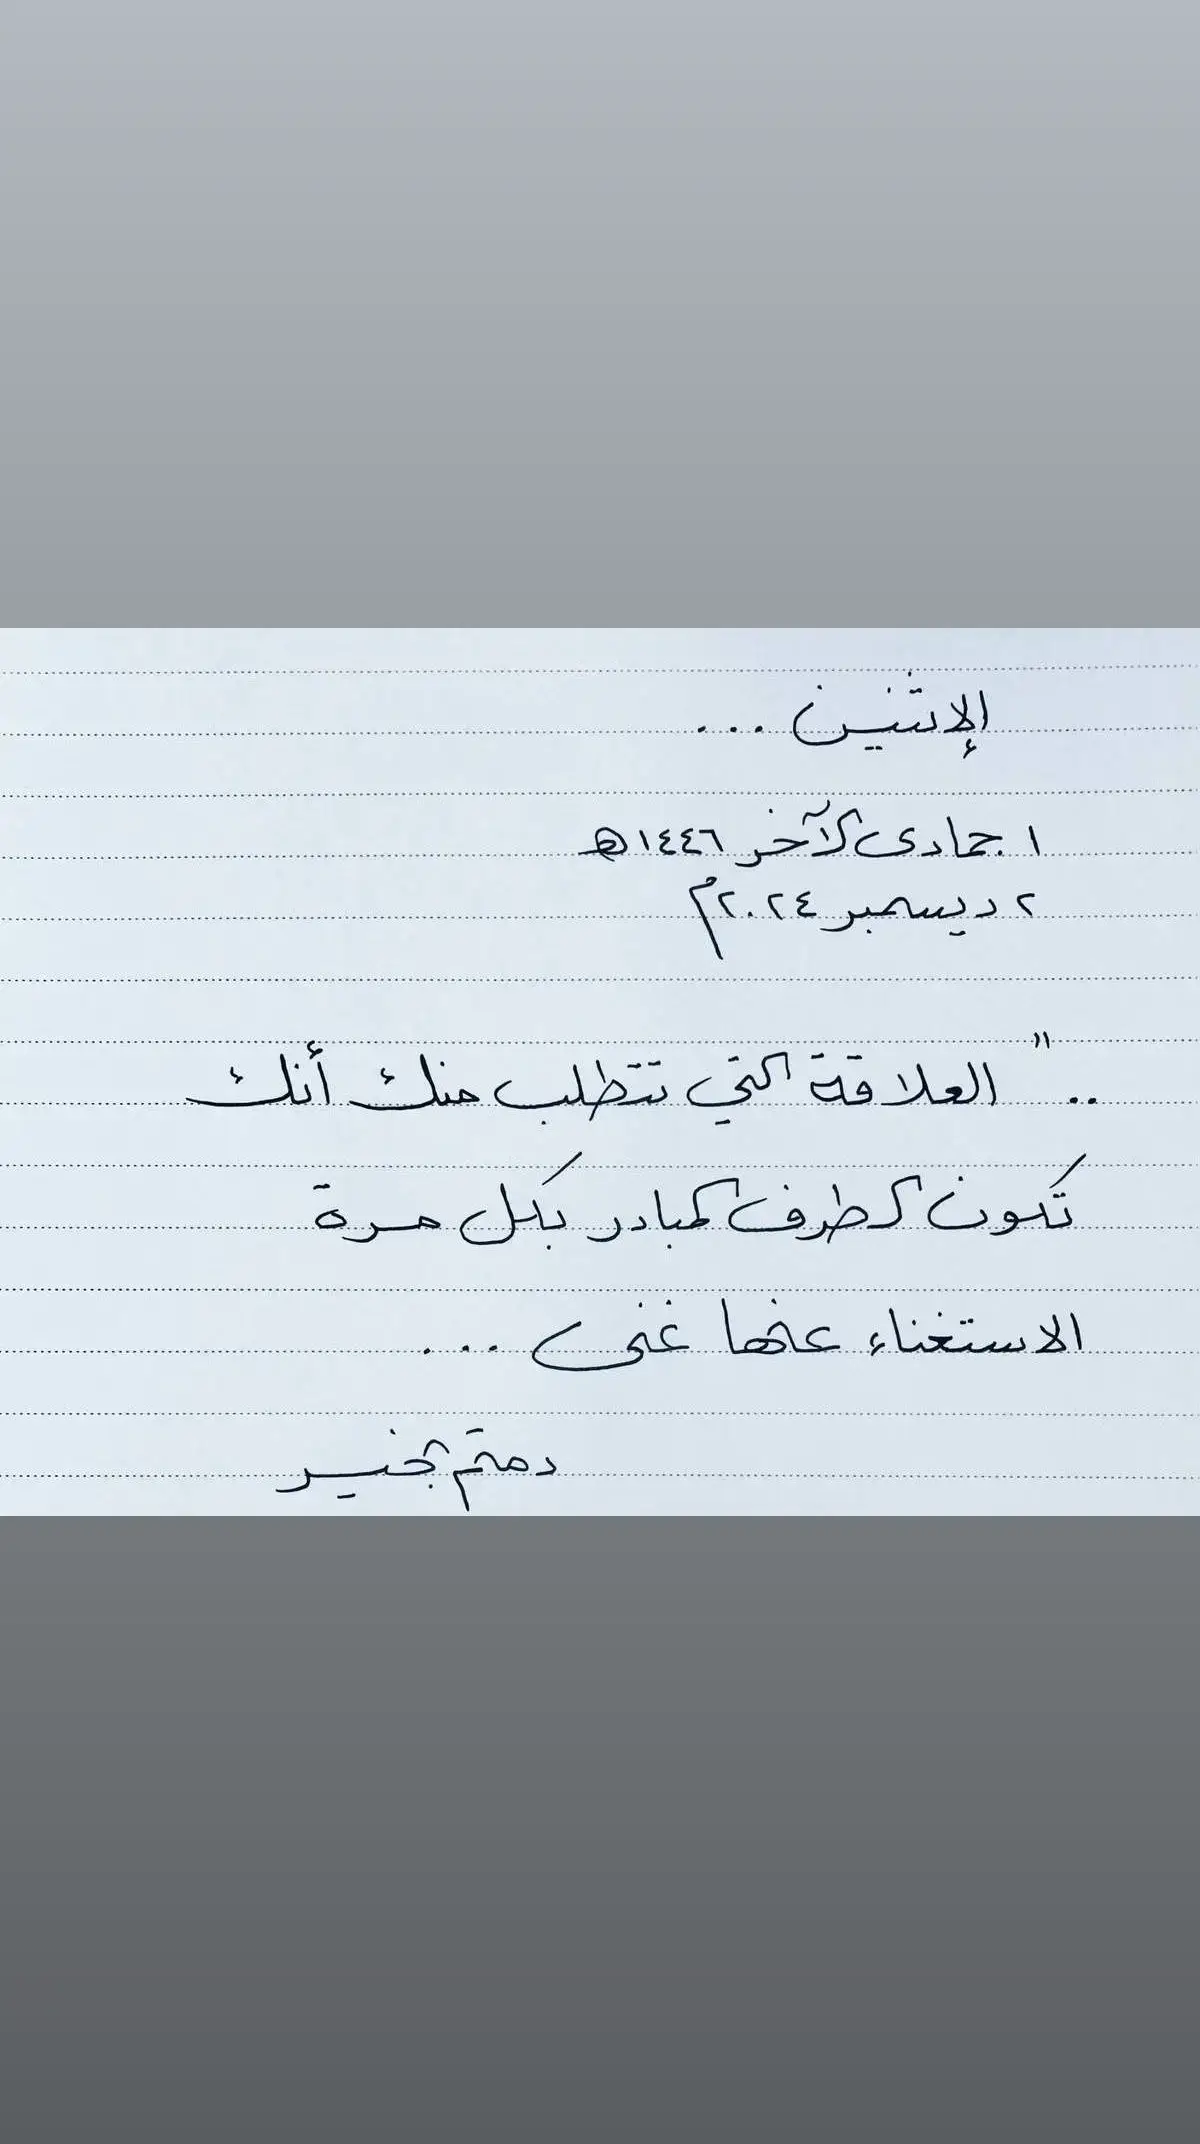 الإثنين ...
١ جمادى الآخر ١٤٤٦هـ
٢ ديسمبر ٢٠٢٤م
.. " العلاقة التي تتطلب منك أنك
تكون الطرف المبادر بكل مرة
الاستغناء عنها غنى ....
دمتم بخير